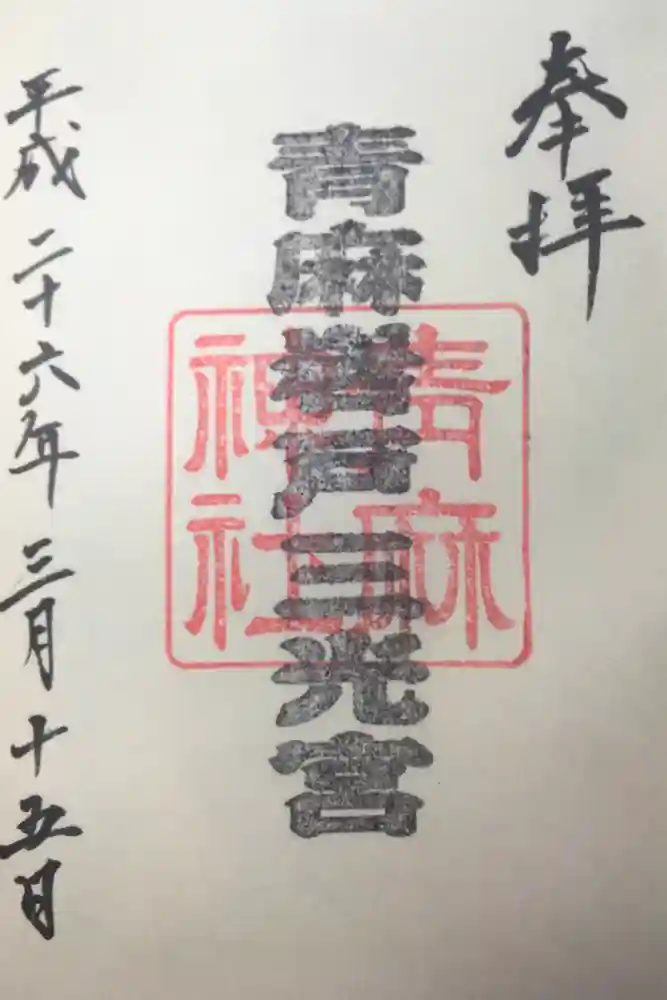 奉拝
青麻岩戸三光宮
青麻
神社
平成二十六年三月十五日